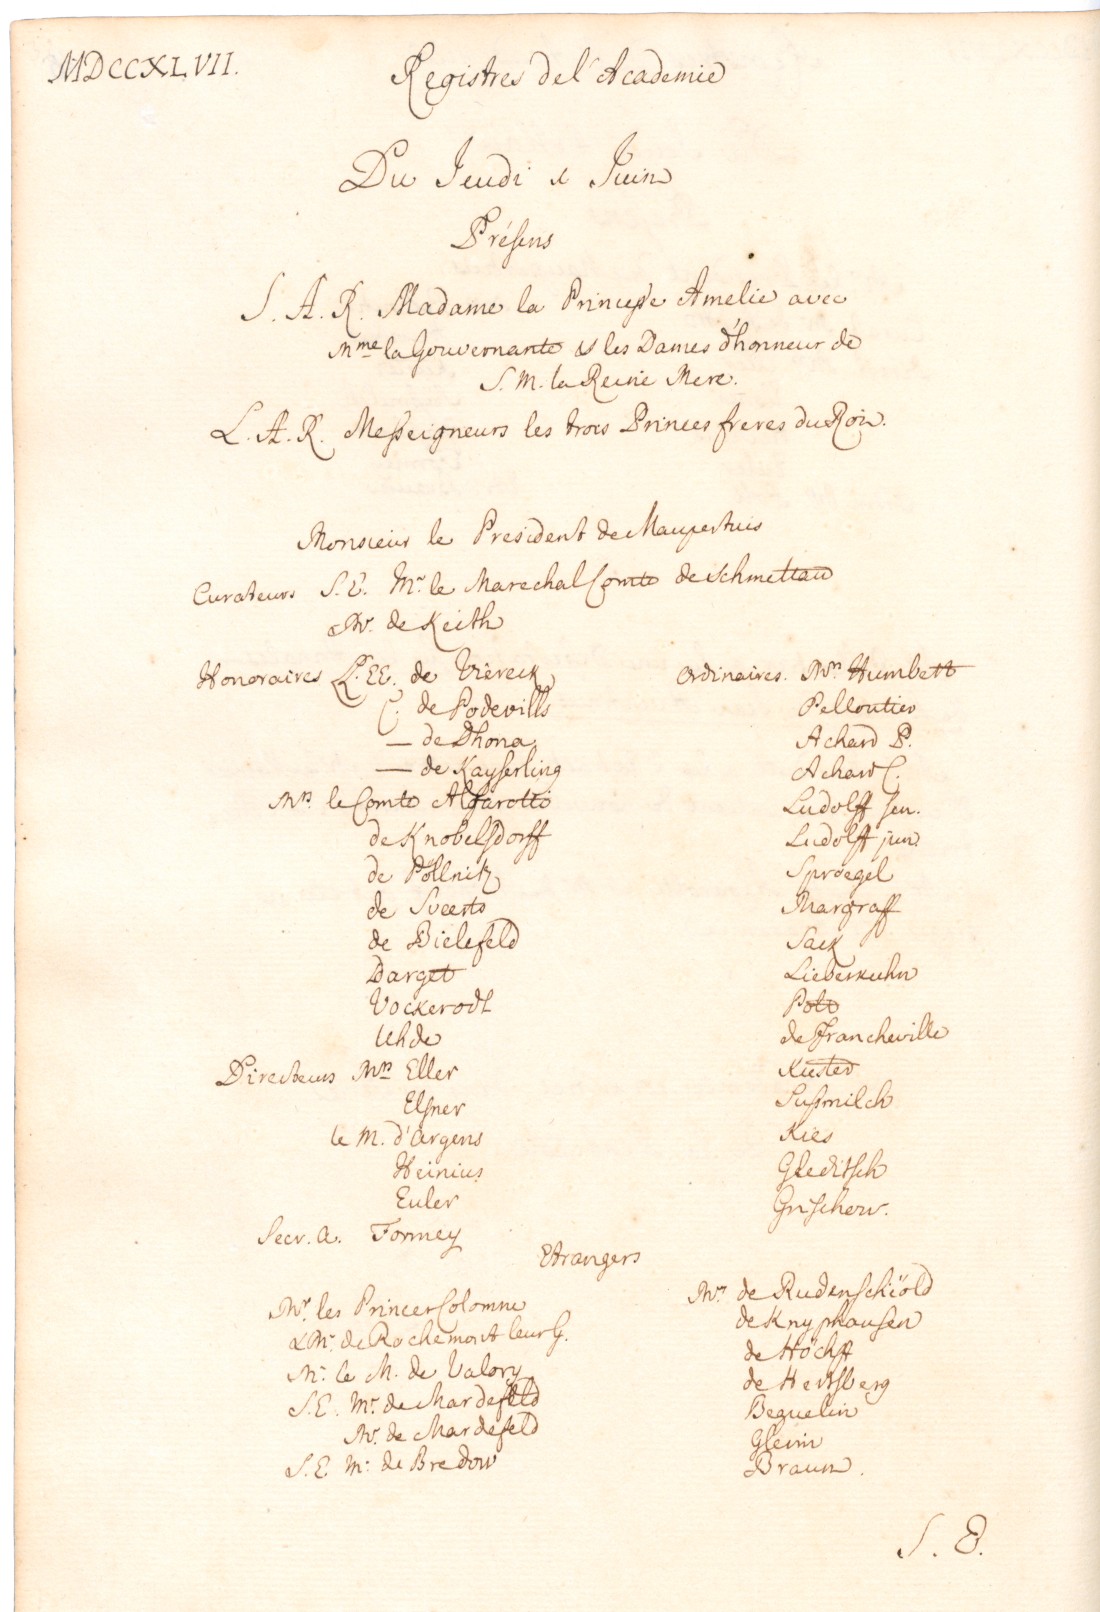 MDCCXLVII.
Registres de l'Academie
Du Jeudi 1 Juin
Présens
S. A. R. Madame la Princesse Amelie avec
Mme la Gouvernante & les Dames d'honneur de
S. M. la Reine Mere.
L. A. R. Messeigneurs les trois Princes freres du Roi.
Monsieur le President de Maupertuis
Curateurs S. E. Mr. le Marechal Comte de Schmettau
Mr. de Keith
Honoraires L. EE. de Viereck
C. de Podevills
— de Dhona
— de Kayserling
Mrs le Comte Algarotti
de Knobelsdorff
de Pöllnitz
de Sveerts
de Bielefeld
Darget
Vockerodt
Uhde
Directeurs Mrs Eller
Elsner
le M. d'Argens
Heinius
Euler
Secr. a. Formey
Ordinaires. Mrs Humbert
Pelloutier
Achard P.
Achard C.
Ludolff sen.
Ludolff jun.
Sproegel
Margraff
Sack
Lieberkuhn
Pott
de Francheville
Kuster
Susmilch
Kies
Gleditsch
Grischow.
Etrangers
Mrs. les Princes Colomne
& Mr. de Rochemont leur G.
Mr. le M. de Valory
S. E. Mr. de Mardefeld
Mr. de Mardefeld
S. E. Mr. de Bredow
Mrs de Rudenschiöld
de Knyphausen
de Höchst
de Hertsberg
Beguelin
Gleim
Braun.
S. E.